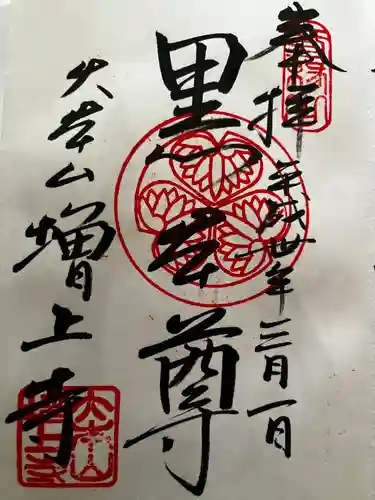 奉拝
平成卅一年三月一日
黒本尊
大本山
増上寺